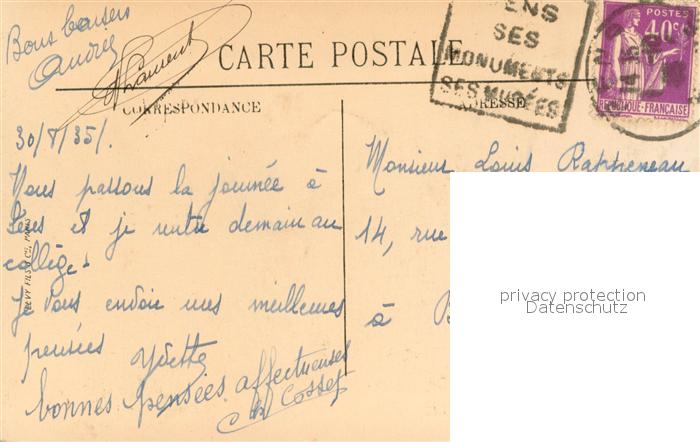 Bons baisers
Andrée
Laurent
CARTE POSTALE
CORRESPONDANCE
ADRESSE
SENS
SES
MONUMENTS
SES MUSÉES
POSTES
40c
RÉPUBLIQUE-FRANÇAISE
30/8/35/.
Nous passons la journée à
Sens et je rentre demain au
collège.
Je vous envoie mes meilleures
pensées Ydette
bonnes pensées affectueuses
Cosset
LEVY FILS & Cie, PARIS
Monsieur Louis Rappeneau
14, rue
à B
privacy protection
Datenschutz